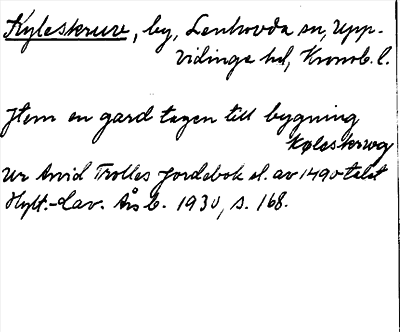 Kyleskruv, by, Lenhovda sn, Upp-
vidinge hd, Kronob. l.
Jtem en gard tagen till bygning
Kølsskrwg
Ur Arvid Trolles jordebok sl. av 1490-talet
Hylt.-Cav. Årsb. 1930, s. 168.